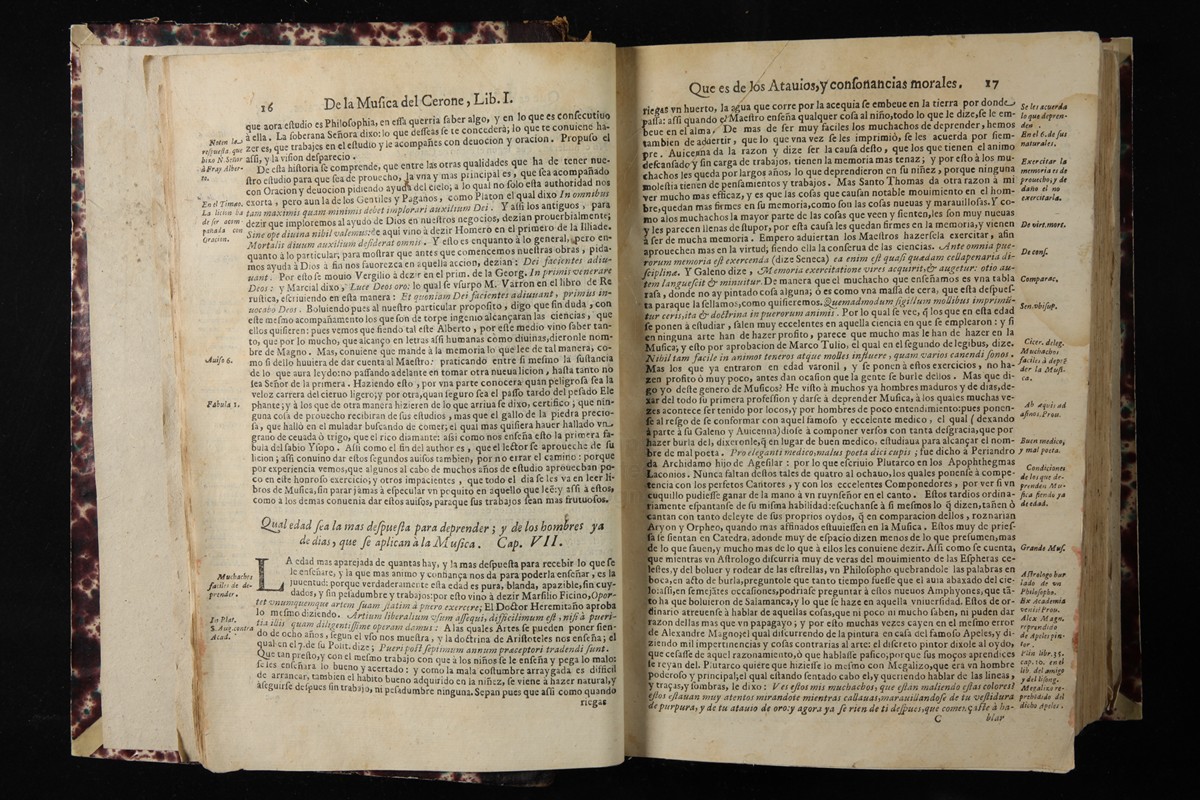 16 De la Musica del Cerone, Lib. I.
que aora estudio es Philosophia, en essa querria saber algo, y en lo que es consecutiuo
à ella. La soberana Señora dixo: lo que desseas se te concederà; lo que te conuiene ha-
zer es, que trabajes en el estudio y le acompañes con deuocion y oracion. Propuso el
assi, y la vision desparecio.
De esta historia se comprende, que entre las otras qualidades que ha de tener nue-
stro estudio para que sea de prouecho, la vna y mas principal es, que sea acompañado
con Oracion y deuocion pidiendo ayuda del cielo; a lo qual no solo esta authoridad nos
exorta, pero aun la de los Gentiles y Paganos, como Platon el qual dixo In omnibus
tam maximis quam minimis debet implorari auxilium Dei. Y assi los antiguos, para
dezir que imploremos al ayudo de Dios en nuestros negocios, dezian prouerbialmente;
Sine ope diuina nihil valemus: de aqui vino à dezir Homero en el primero de la Iliade.
Mortalis diuum auxilium desiderat omnis. Y esto es enquanto à lo general, pero en-
quanto à lo particular, para mostrar que antes que comencemos nuestras obras, pida-
mos ayuda à Dios à fin nos fauorezca en aquella accion, dezian: Dei facientes adiu-
uant. Por esto se mouio Vergilio à dezir en el prim. de la Georg. In primis venerare
Deos: y Marcial dixo, Luce Deos oro: lo qual se vsurpo M. Varron en el libro de Re
rustica, escriuiendo en esta manera: Et quoniam Dei facientes adiuuant, primus in-
uocabo Deos. Boluiendo pues al nuestro particular proposito, digo que sin duda, con
este mesmo acompañamiento los que son de torpe ingenio alcançaran las ciencias, que
ellos quisieren: pues vemos que siendo tal este Alberto, por este medio vino saber tan-
to, que por lo mucho, que alcanço en letras assi humanas como diuinas, dieronle nom-
bre de Magno. Mas, conuiene que mande à la memoria lo que lee de tal manera, co-
mo si dello huuiera de dar cuenta al Maestro: praticando entre si mesmo la sustancia
de lo que aura leydo: no passando adelante en tomar otra nueua licion, hasta tanto no
sea Señor de la primera. Haziendo esto, por vna parte conocera quan peligrosa sea la
veloz carrera del cieruo ligero; y por otra, quan seguro sea el passo tardo del pesado Ele
phante; y à los que de otra manera hizieren de lo que arriua se dixo, certifico; que nin-
guna cosa de prouecho recibiran de sus estudios, mas que el gallo de la piedra precio-
sa, que hallò en el muladar buscando de comer; el qual mas quisiera hauer hallado vn
grano de ceuada ò trigo, que el rico diamante: assi como nos enseña esto la primera fa-
bula del sabio Ysopo. Assi como el fin del author es, que el lector se aproueche de su
licion; assi conuino dar estos segundos auisos tambien, por no errar el camino: porque
por experiencia vemos, que algunos al cabo de muchos años de estudio aprouecban po-
co en este honroso exercicio; y otros impacientes, que todo el dia se les va en leer li-
bros de Musica, sin parar jamàs à especular vn pequito en aquello que leẽ: y assi à estos,
como à los demas conuenia dar estos auisos, paraque sus trabajos sean mas frutuosos.
Qual edad sea la mas despuesta para deprender; y de los hombres ya
de dias, que se aplican à la Musica. Cap. VII.
LA edad mas aparejada de quantas hay, y la mas despuesta para recibir lo que se
le enseñare, y la que mas animo y confiança nos da para poderla enseñar, es la
juuentud: porque verdaderamente esta edad es pura, blanda, apazible, sin cuy-
dados, y sin pesadumbre y trabajos: por esto vino à dezir Marsilio Ficino, Opor-
tet vnumquemque artem suam statim à puero exercere; El Doctor Heremitaño aproba
lo mesmo diziendo. Artium liberalium vsum assequi, difficilimum est, nisi à pueri-
tia illis quam diligentissime operam damus: A las quales Artes se pueden poner sien-
do de ocho años, segun el vso nos muestra, y la doctrina de Aristoteles nos enseña; el
qual en el 7. de su Polit. dize; Pueri post septimum annum præceptori tradendi sunt.
Que tan presto, y con el mesmo trabajo con que à los niños se le enseña y pega lo malo;
se les enseñara lo bueno y acertado: y como la mala costumbre arraygada es dificil
de arrancar, tambien el habito bueno adquirido en la niñez, se viene à hazer natural, y
à seguirse despues sin trabajo, ni pesadumbre ninguna. Sepan pues que assi como quando
riegas
Noten la
respuesta que
hizo N. Señor
à Fray Alber-
to.
En el Timeo.
La licion ha
de ser acom
pañada con
Oracion.
Auiso 6.
Fabula 1.
Muchachos
faciles de de-
prender.
In Plat.
S. Aug. contra
Acad.
Que es de los Atauios, y consonancias morales. 17
riegas vn huerto, la agua que corre por la acequia se embeue en la tierra por donde
passa: assi quando el Maestro enseña qualquer cosa al niño, todo lo que le dize, se le em-
beue en el alma. De mas de ser muy faciles los muchachos de deprender, hemos
tambien de aduertir, que lo que vna vez se les imprimiò, se les acuerda por siem-
pre. Auicena da la razon y dize ser la causa desto, que los que tienen el animo
descansado y sin carga de trabajos, tienen la memoria mas tenaz; y por esto à los mu-
chachos les queda por largos años, lo que deprendieron en su niñez, porque ninguna
molestia tienen de pensamientos y trabajos. Mas Santo Thomas da otra razon à mi
ver mucho mas efficaz, y es que las cosas que causan notable mouimiento en el hom-
bre, quedan mas firmes en su memoria, como son las cosas nueuas y marauillosas. Y co-
mo alos muchachos la mayor parte de las cosas que veen y sienten, les son muy nueuas
y les parecen llenas de stupor, por esta causa les quedan firmes en la memoria, y vienen
à ser de mucha memoria. Empero aduiertan los Maestros hazersela exercitar, afin
aprouechen mas en la virtud; siendo ella la conserua de las ciencias. Ante omnia pue-
rorum memoria est exercenda (dize Seneca) ea enim est quasi quædam cellapenaria di-
sciplinæ. Y Galeno dize, Memoria exercitatione vires acquirit, & augetur: otio au-
tem languescit & minuitur. De manera que el muchacho es vna tabla
rasa, donde no ay pintado cosa alguna; ò es como vna massa de cera, que esta despues-
ta paraque la sellamos, como quisieremos. Quemadmodum sigillum mollibus imprimi-
tur ceris, ita & doctrina in puerorum animis. Por lo qual se vee, q̃ los que en esta edad
se ponen à estudiar, salen muy eccelentes en aquella ciencia en que se emplearon: y si
en ninguna arte han de hazer profito, parece que mucho mas le han de hazer en la
Musica; y esto por aprobacion de Marco Tulio, el qual en el segundo de legibus, dize.
Nihil tam facile in animos teneros atque molles influere, quam varios canendi sonos.
Mas los que ya entraron en edad varonil, y se ponen à estos exercicios, no ha-
zen profito ò muy poco, antes dan ocasion que la gente se burle dellos. Mas que di-
go yo deste genero de Musicos? He visto à muchos ya hombres maduros y de dias, de-
xar del todo su primera profession y darse à deprender Musica, à los quales muchas ve-
zes acontece ser tenido por locos, y por hombres de poco entendimiento; pues ponen-
se al resgo de se conformar con aquel famoso y eccelente medico, el qual (dexando
à parte à su Galeno y Auicenna) diose à componer versos con tanta desgracia, que por
hazer burla del, dixeronle, q̃ en lugar de buen medico, estudiaua para alcançar el nom-
bre de mal poeta. Pro eleganti medico, malus poeta dici cupis; fue dicho à Periandro
da Archidamo hijo de Agesilar: por lo que escriuio Plutarco en los Apophthegmas
Laconios. Nunca faltan destos tales de quatro al ochauo, los quales ponense à compe-
tencia con los perfetos Cantores, y con los eccelentes Componedores, por ver si vn
cuquillo pudiesse ganar de la mano à vn ruynseñor en el canto. Estos tardios ordina-
riamente espantanse de su misma habilidad: escuchanse à si mesmos lo q̃ dizen, tañen ò
cantan con tanto deleyte de sus proprios oydos, q̃ en comparacion dellos, roznarian
Aryon y Orpheo, quando mas affinados estuuiessen en la Musica. Estos muy de pries-
sa se sientan en Catedra, adonde muy de espacio dizen menos de lo que presumen, mas
de lo que sauen, y mucho mas de lo que à ellos les conuiene dezir. Assi como se cuenta,
que mientras vn Astrologo discurria muy de veras del mouimiento de las Espheras ce-
lestes, y del boluer y rodear de las estrellas, vn Philosopho quebrandole las palabras en
boca, en acto de burla, preguntole que tanto tiempo fuesse que el aua abaxado del cie-
lo: assi, en semejãtes occasiones, podriase preguntar à estos nueuos Amphyones, que tã-
to ha que boluieron de Salamanca, y lo que se haze en aquella vniuersidad. Estos de or-
dinario atreuense à hablar de aquellas cosas, que ni poco ni mucho saben, ni pueden dar
razon dellas mas que vn papagayo; y por esto muchas vezes cayen en el mesmo error
de Alexandre Magno; el qual discurrendo de la pintura en casa del famoso Apeles, y di-
ziendo mil impertinencias y cosas contrarias al arte: el discreto pintor dixole al oydo,
que cesasse de aquel razonamiento, ò que hablasse pasico, porque sus moços aprendices
le reyan del. Plutarco quiere que hiziesse lo mesmo con Megalizo, que era vn hombre
poderoso y principal; el qual estando sentado cabo el, y queriendo hablar de las lineas,
y traças, y sombras, le dixo: Ves estos mis muchachos, que estan moliendo estas colores?
estos estauan muy atentos mirandote mientras callauas, marauillandose de tu vestidura
de purpura, y de tu atauio de oro: y agora ya se rien de ti despues, que començaste à ha-
C blar
Se les acuerda
lo que depren-
den.
En el 6. de sus
naturales.
Exercitar la
memoria es de
prouecho; y de
daño el no
exercitarla.
De virt. mort.
De cons.
Comparac.
Sen. vbi sup.
Cicer. de leg.
Muchachos
faciles à deprẽ
der la Musi-
ca.
Ab aquis ad
asinos. Prou.
Buen medico;
y mal poeta.
Condiciones
de los que de-
prenden Mu-
sica siendo ya
de edad.
Grande Mus.
Astrologo bur
lado de vn
Philosopho.
Ex Academia
venisti Prou.
Alex Magn.
reprendido
de Apeles pin-
tor.
Plin libr. 35.
cap. 10. en el
lib. del amigo
y del lisong.
Megalizo re-
prehẽdido del
dicho Apeles.